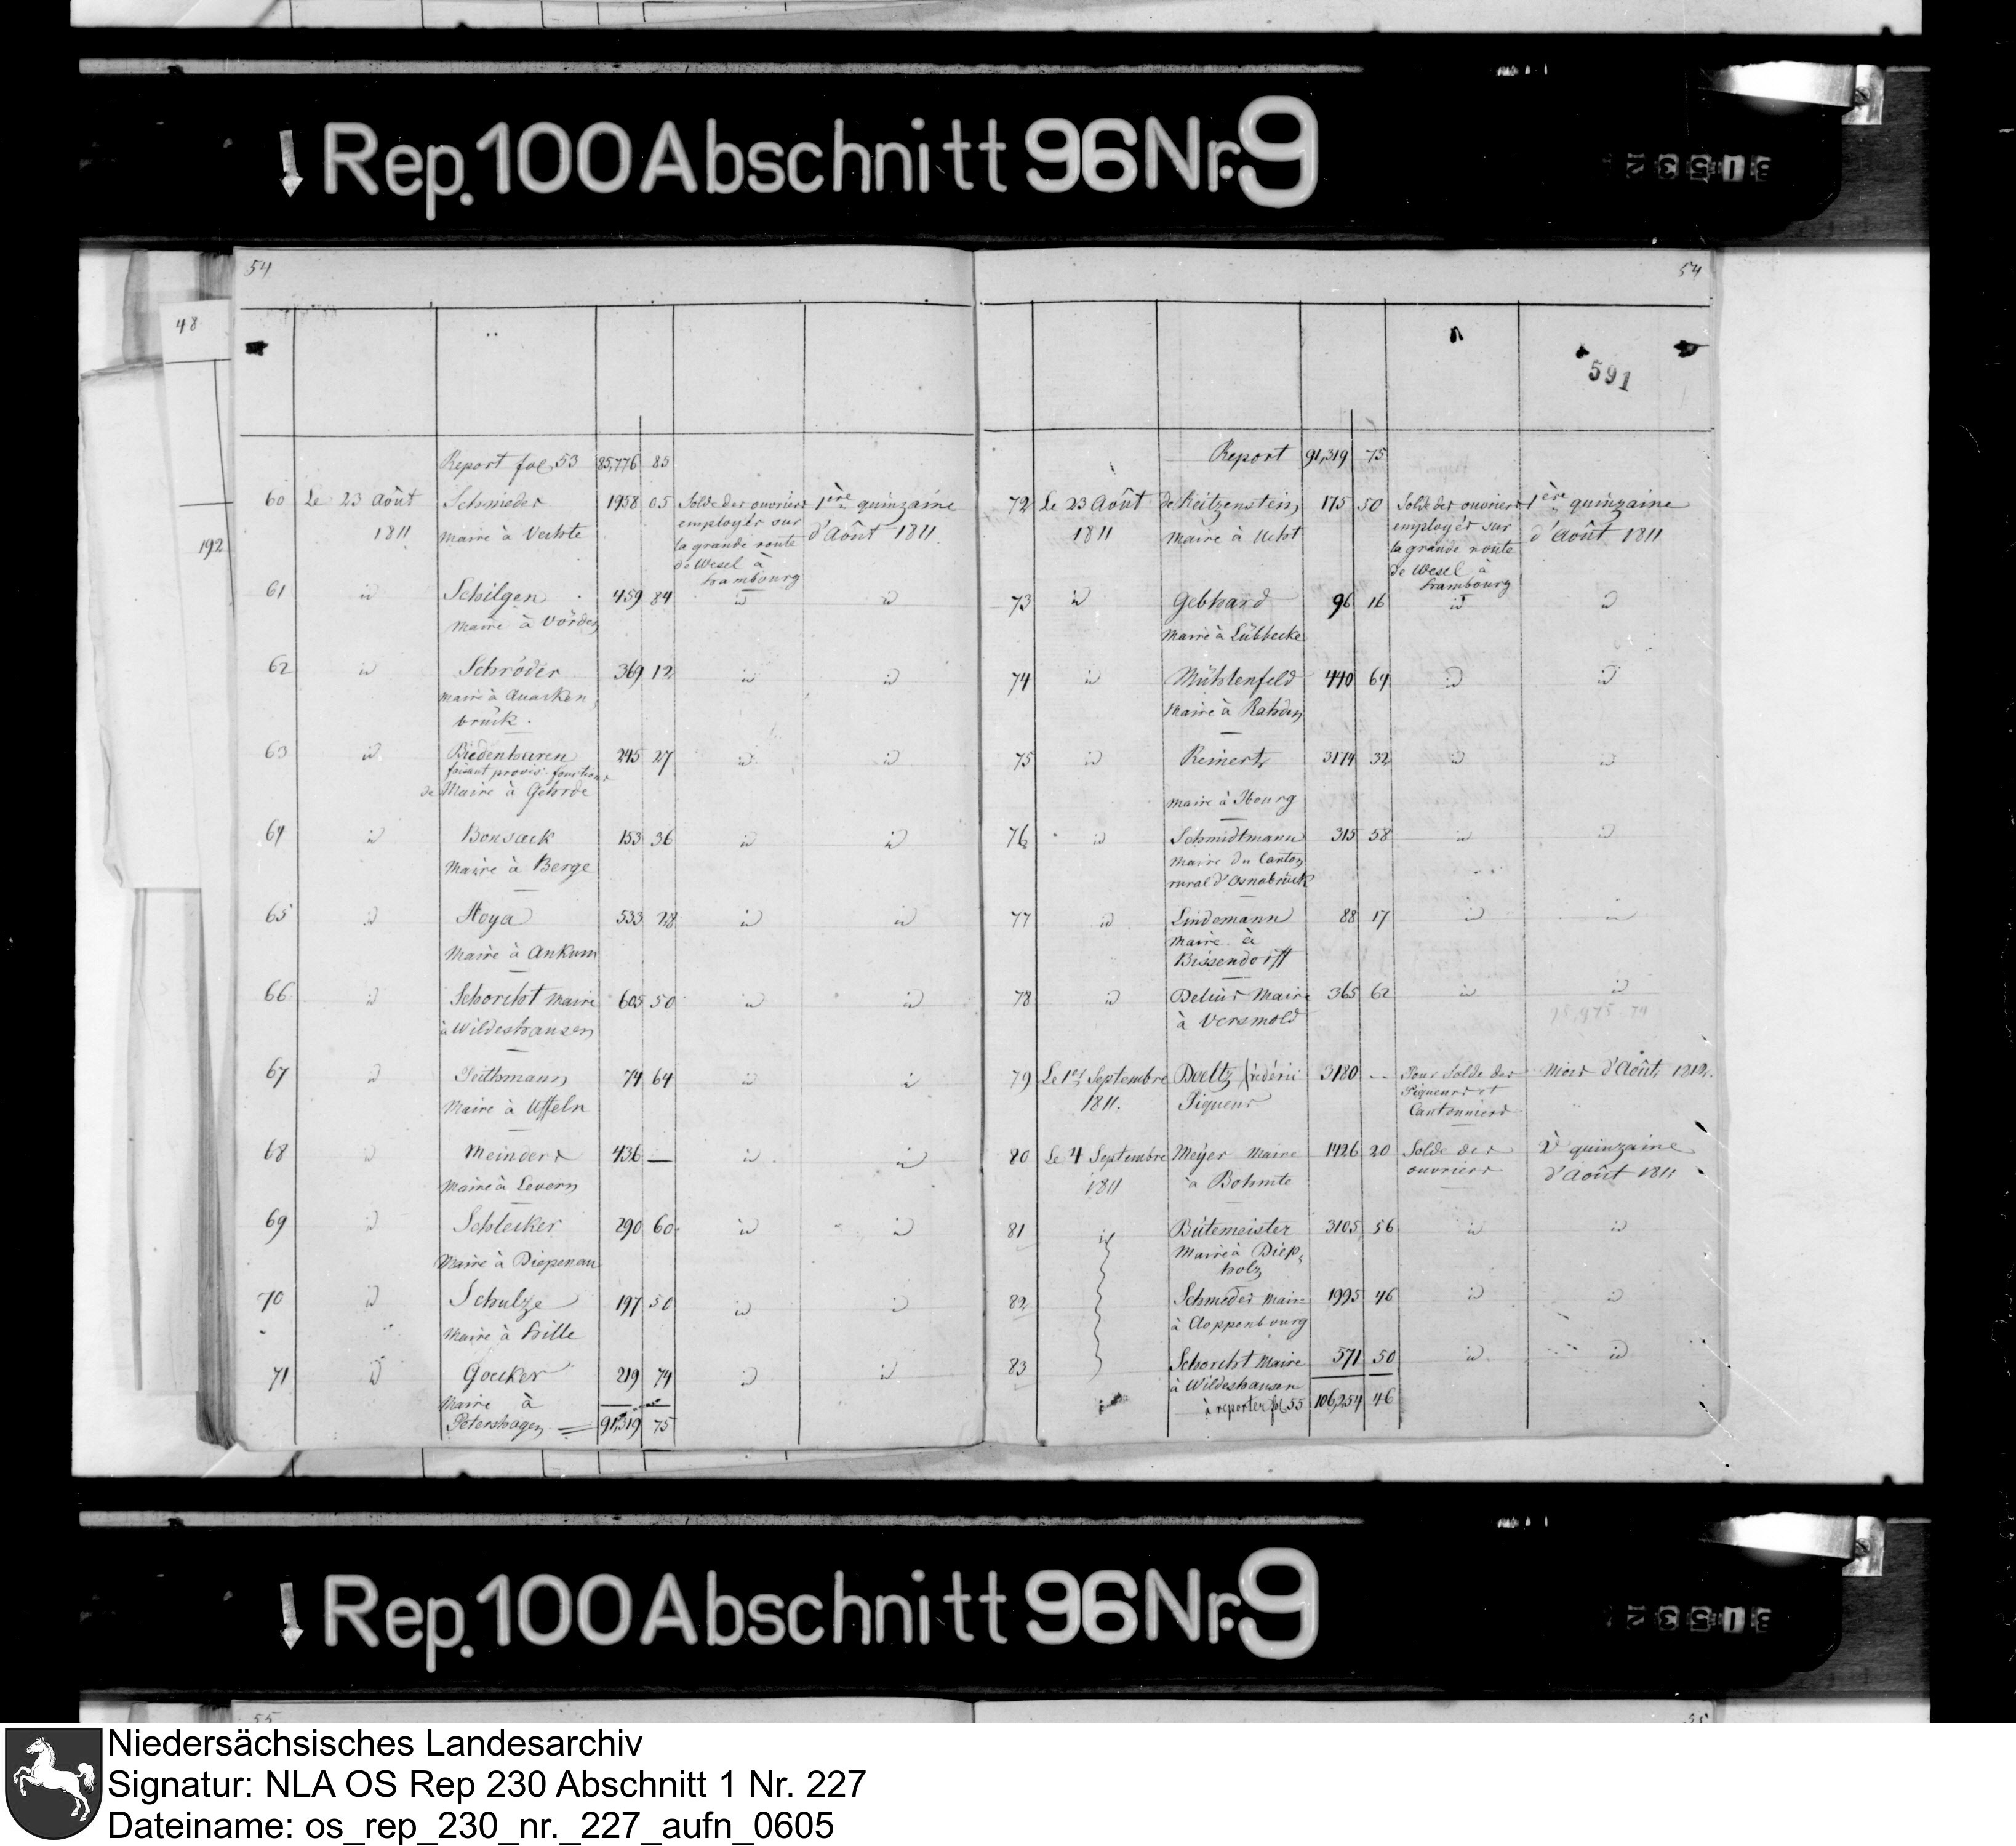 Rep. 100 Abschnitt 96 Nr. 9
54
Report fol 53 85,776 85
60 Le 23 Août Schmeder 1958 05 Solde des ouvriers 1ère quinzaine
1811 Maire à Vechte employés sur d'Août 1811
la grande route
de Wesel à
hambourg
61 id Schilgen 459 84 id id
Maire à Vörden
62 id Schröder 369 12 id id
Maire à Quacken
brück.
63 id Biedenharen 245 27 id id
faisant provis. fonctions
de Maire à Gehrde
64 id Bonsack 153 36 id id
Maire à Berge
65 id Hoya 533 28 id id
Maire à Ankum
66 id Schorcht Maire 605 50 id id
à Wildeshausen
67 id 74 64 id id
Maire à Uffeln
68 id Meinders 436 — id id
Maire à Levern
69 id Schlecker 290 60 id id
Maire à Diepenau
70 id Schulze 197 50 id id
Maire à hille
71 id Goecker 219 74 id id
Maire à
Petershagen 91,319 75
54
591
Report 91,319 75
72 Le 23 Août de Reitzenstein 175 50 Solde des ouvriers 1ère quinzaine
1811 Maire à Ucht employés sur d'Août 1811
la grande route
de Wesel à
hambourg
73 id Gebhard 96 16 id id
Maire à Lübbecke
74 id Mühlenfeld 440 64 id id
Maire à Rahden
75 id Reinert 3174 32 id id
Maire à Ibourg
76 id Schmidtmann 315 58 id id
Maire du Canton
rural d'Osnabrück
77 id Lindemann 88 17 id id
Maire à
Bissendorff
78 id Delius Maire 365 62 id id
à Versmold
79 Le 1er Septembre Doeltz frédéric 3180 -- Pour Solde des Mois d'Août 1812.
1811. Piqueur Piqueurs et
Cantonniers
80 Le 4 Septembre Meÿer Maire 1426 20 Solde des 2e quinzaine
1811 à Bohmte ouvriers d'Août 1811
81 id Bütemeister 3105 56 id id
Maire à Diep,
holz
82 Schmedes Maire 1995 46 id id
à Cloppenbourg
83 Schorcht Maire 571 50 id id
à Wildeshausen
à reporter fol 55 106,254 46
48
192
Rep. 100 Abschnitt 96 Nr. 9
55
Niedersächsisches Landesarchiv
Signatur: NLA OS Rep 230 Abschnitt 1 Nr. 227
Dateiname: os_rep_230_nr._227_aufn_0605